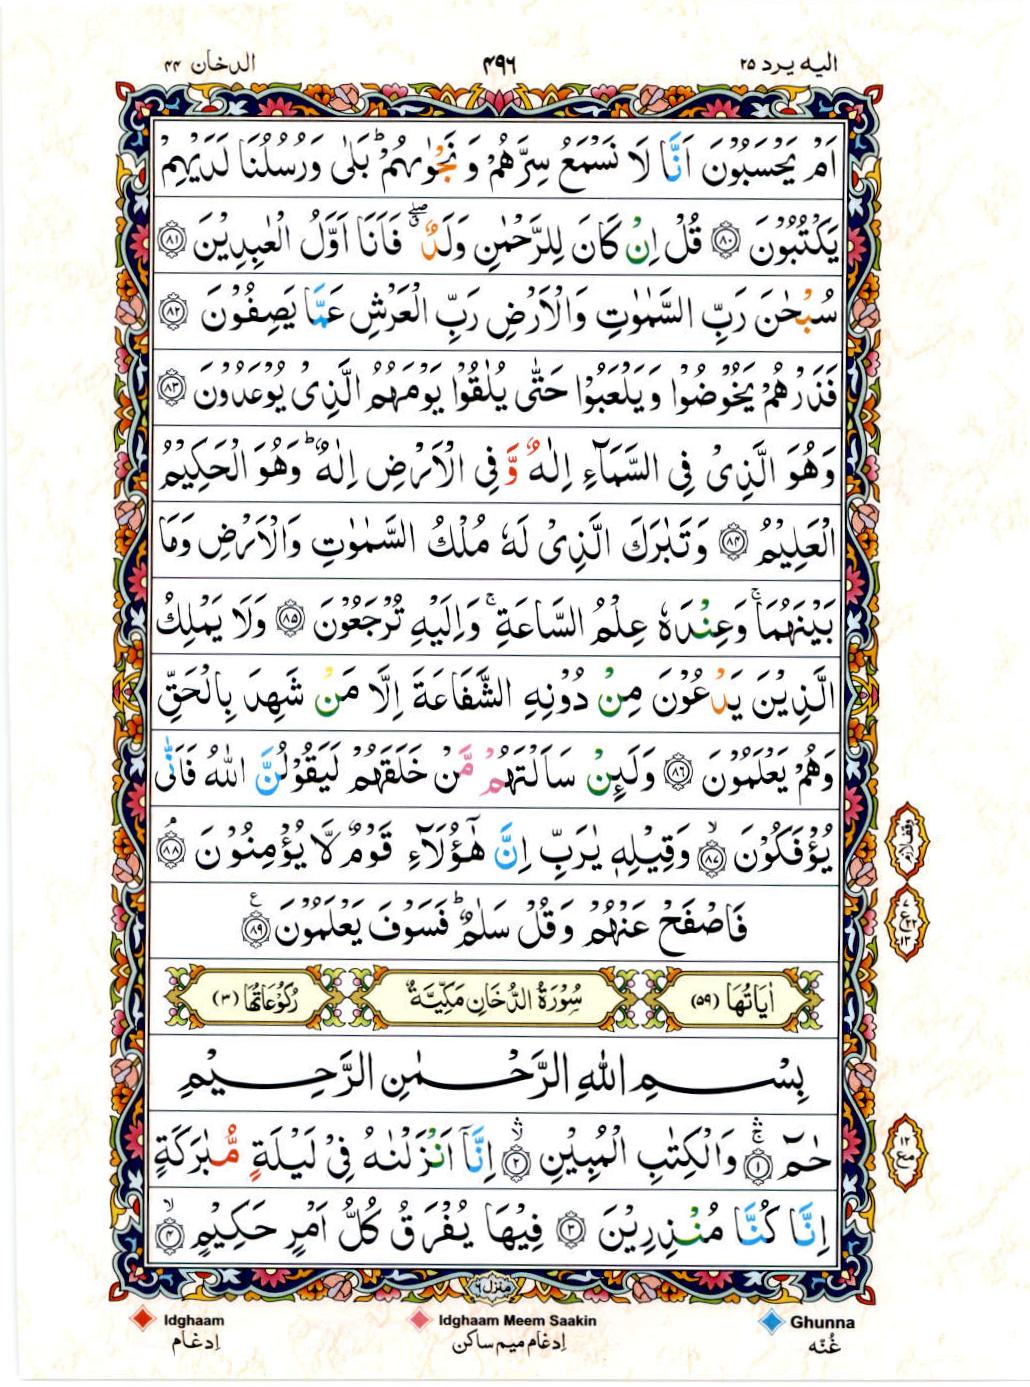 الدخان ۴۴
۴۹۶
الیه یرد ۲۵
اَمْ یَحْسَبُوْنَ اَنَّا لَا نَسْمَعُ سِرَّهُمْ وَ نَجْوٰىهُمْ ؕ بَلٰی وَرُسُلُنَا لَدَیْهِمْ
یَكْتُبُوْنَ ﴿۸۰﴾ قُلْ اِنْ كَانَ لِلرَّحْمٰنِ وَلَدٌ ۖۗ فَاَنَا اَوَّلُ الْعٰبِدِیْنَ ﴿۸۱﴾
سُبْحٰنَ رَبِّ السَّمٰوٰتِ وَالْاَرْضِ رَبِّ الْعَرْشِ عَمَّا یَصِفُوْنَ ﴿۸۲﴾
فَذَرْهُمْ یَخُوْضُوْا وَیَلْعَبُوْا حَتّٰی یُلٰقُوْا یَوْمَهُمُ الَّذِیْ یُوْعَدُوْنَ ﴿۸۳﴾
وَهُوَ الَّذِیْ فِی السَّمَآءِ اِلٰهٌ وَّ فِی الْاَرْضِ اِلٰهٌ ؕ وَهُوَ الْحَكِیْمُ
الْعَلِیْمُ ﴿۸۴﴾ وَتَبٰرَكَ الَّذِیْ لَهٗ مُلْكُ السَّمٰوٰتِ وَالْاَرْضِ وَمَا
بَیْنَهُمَا ۚ وَعِنْدَهٗ عِلْمُ السَّاعَةِ ۚ وَاِلَیْهِ تُرْجَعُوْنَ ﴿۸۵﴾ وَلَا یَمْلِكُ
الَّذِیْنَ یَدْعُوْنَ مِنْ دُوْنِهِ الشَّفَاعَةَ اِلَّا مَنْ شَهِدَ بِالْحَقِّ
وَهُمْ یَعْلَمُوْنَ ﴿۸۶﴾ وَلَىِٕنْ سَاَلْتَهُمْ مَّنْ خَلَقَهُمْ لَیَقُوْلُنَّ اللّٰهُ فَاَنّٰی
یُؤْفَكُوْنَ ۙ﴿۸۷﴾ وَقِیْلِهٖ یٰرَبِّ اِنَّ هٰۤؤُلَآءِ قَوْمٌ لَّا یُؤْمِنُوْنَ ۘ﴿۸۸﴾
وقف لازم
فَاصْفَحْ عَنْهُمْ وَقُلْ سَلٰمٌ ؕ فَسَوْفَ یَعْلَمُوْنَ ﴿۸۹﴾ ع
۷
ع ۲۲
۱۳
اٰیَاتُهَا (۵۹)
سُوْرَةُ الدُّخَانِ مَكِّیَّةٌ
رُكُوْعَاتُهَا (۳)
بِسْمِ اللّٰهِ الرَّحْمٰنِ الرَّحِیْمِ
حٰمٓ ۚۛ﴿۱﴾ وَالْكِتٰبِ الْمُبِیْنِ ۙۛ﴿۲﴾ اِنَّاۤ اَنْزَلْنٰهُ فِیْ لَیْلَةٍ مُّبٰرَكَةٍ
۱۲
مع
اِنَّا كُنَّا مُنْذِرِیْنَ ﴿۳﴾ فِیْهَا یُفْرَقُ كُلُّ اَمْرٍ حَكِیْمٍ ۙ﴿۴﴾
منزل ۶
Idghaam
اِدغام
Idghaam Meem Saakin
اِدغام میم ساکن
Ghunna
غُنّه